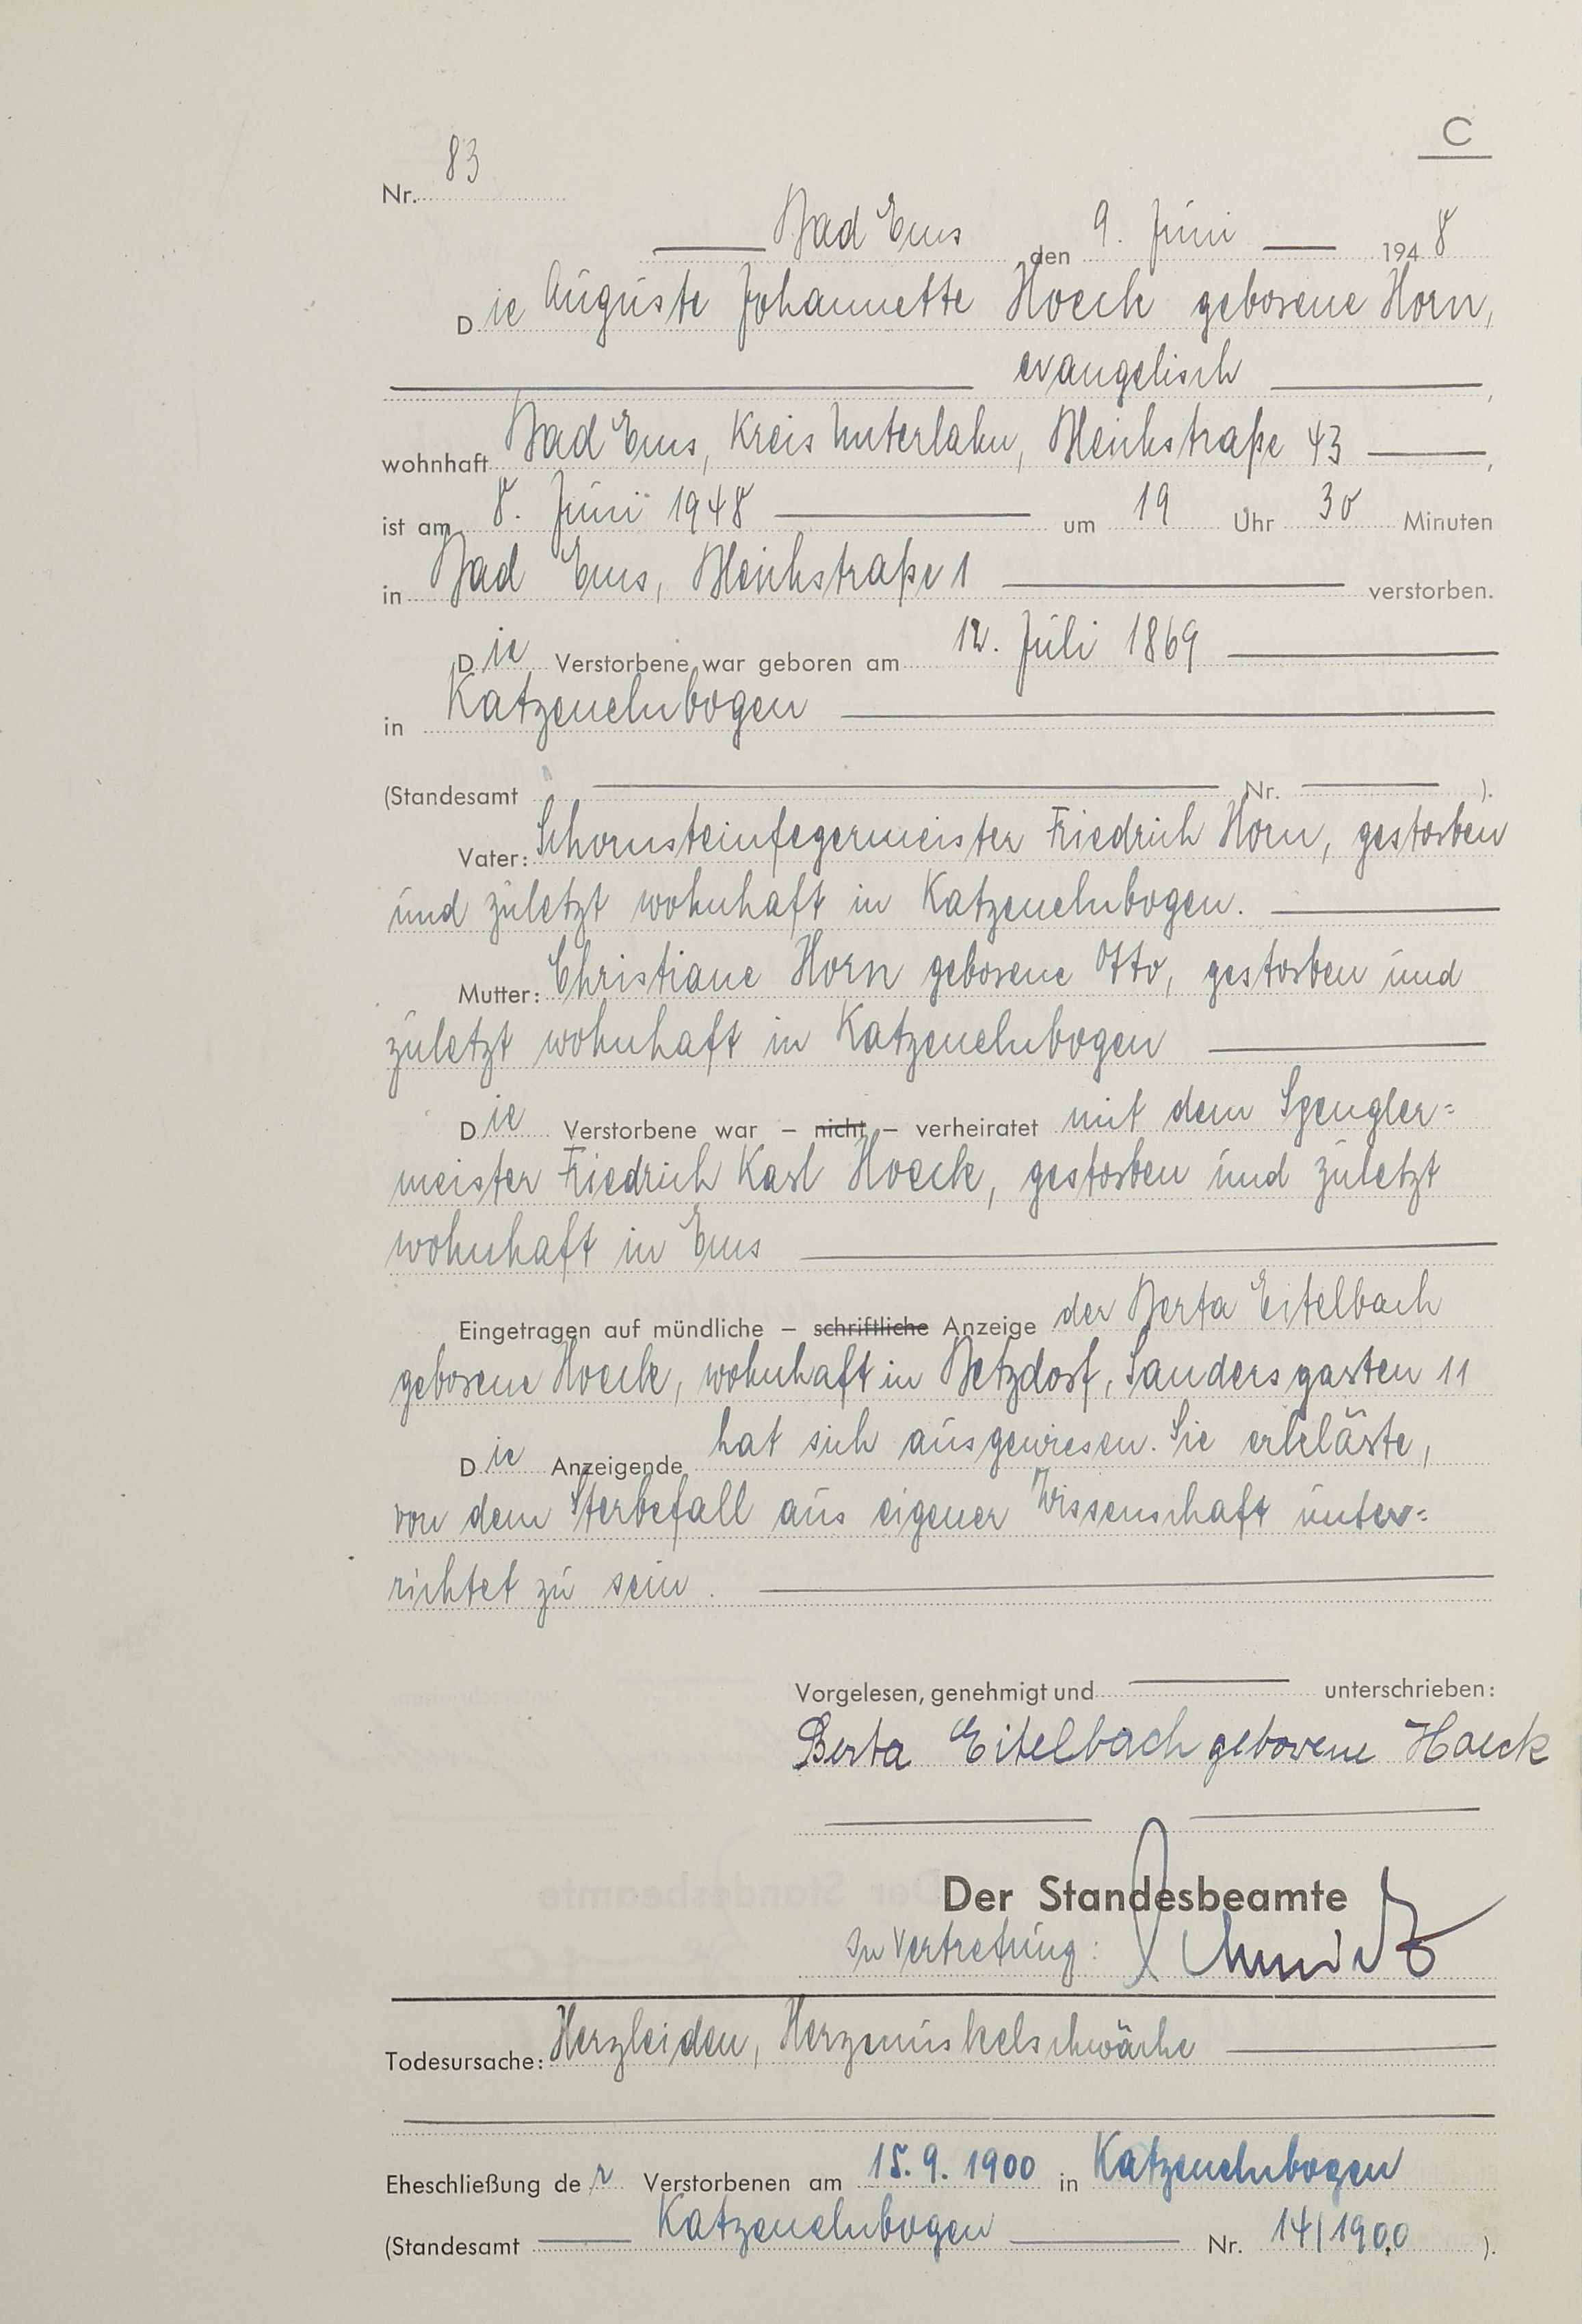 C
Nr. 83
Bad Ems den 9. Juni 1948
Die Auguste Johannette Hoeck geborene Horn,
evangelisch ,
wohnhaft Bad Ems, Kreis Unterlahn, Bleichstraße 43 ,
ist am 8. Juni 1948 um 19 Uhr 30 Minuten
in Bad Ems, Bleichstraße 1 verstorben.
Die Verstorbene war geboren am 12. Juli 1869
in Katzenelnbogen
(Standesamt Nr. ).
Vater: Schornsteinfegermeister Friedrich Horn, gestorben
und zuletzt wohnhaft in Katzenelnbogen.
Mutter: Christiane Horn geborene Otto, gestorben und
zuletzt wohnhaft in Katzenelnbogen
Die Verstorbene war – nicht – verheiratet mit dem Spengler=
meister Friedrich Karl Hoeck, gestorben und zuletzt
wohnhaft in Ems
Eingetragen auf mündliche – schriftliche Anzeige der Berta Eitelbach
geborene Hoeck, wohnhaft in Betzdorf, Sandersgarten 11
Die Anzeigende hat sich ausgewiesen. Sie erklärte,
von dem Sterbefall aus eigener Wissenschaft unter=
richtet zu sein.
Vorgelesen, genehmigt und unterschrieben:
Berta Eitelbach geborene Hoeck
Der Standesbeamte
In Vertretung: Schmidt
Todesursache: Herzleiden, Herzmuskelschwäche
Eheschließung der Verstorbenen am 15.9.1900 in Katzenelnbogen
(Standesamt Katzenelnbogen Nr. 14/1900 ).